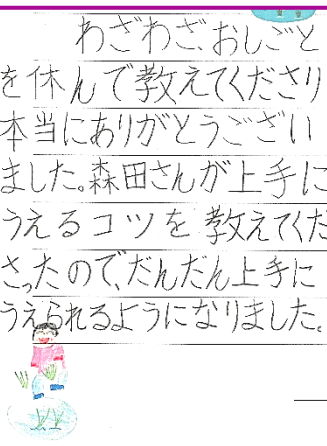 わざわざ、おしごと
を休んで教えてくださり
本当にありがとうござい
ました。森田さんが上手に
うえるコツを教えてくだ
さったので、だんだん上手に
うえられるようになりました。